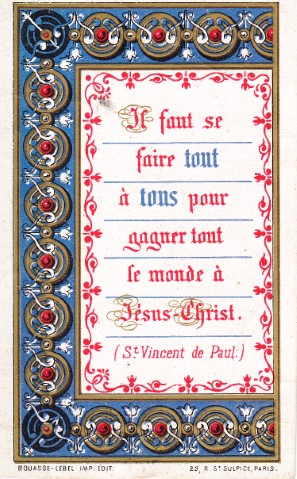 Il faut se
faire tout
à tous pour
gagner tout
le monde à
Jésus-Christ.
(St. Vincent de Paul.)
BOUASSE-LEBEL IMP. EDIT. 29, R. ST SULPICE, PARIS.